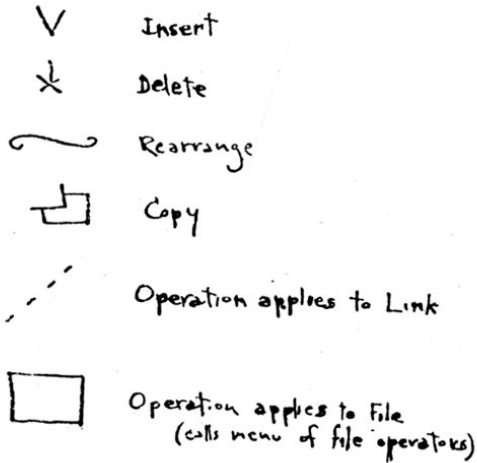 Insert
Delete
Rearrange
Copy
Operation applies to Link
Operation applies to File
(calls menu of file operators)